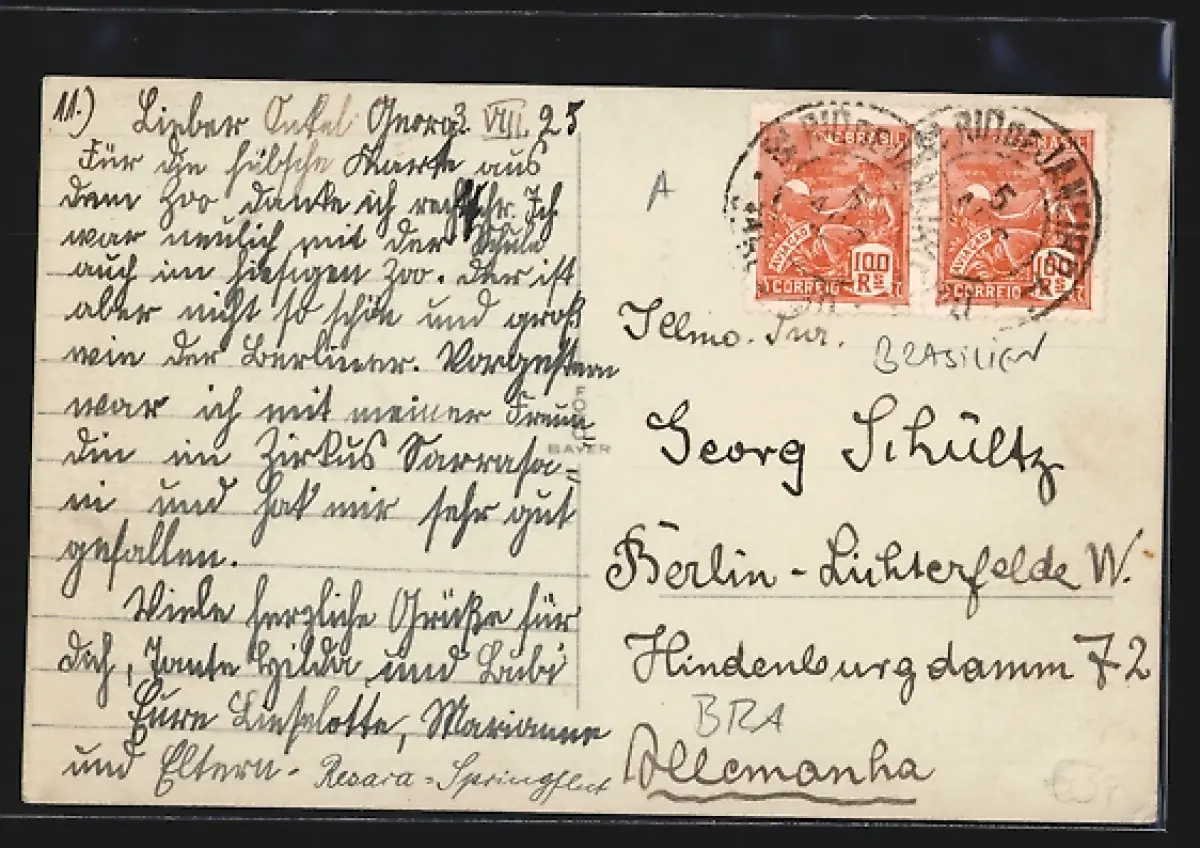 11.) Lieber Onkel Georg! VIII. 25
Für die hübsche Karte aus
dem Zoo danke ich recht sehr. Ich
war neulich mit der Schule
auch im hiesigen Zoo. Der ist
aber nicht so schön und groß
wie der Berliner. Vorgestern
war ich mit meiner Freun-
din im Zirkus Sarrasa-
ni und hat mir sehr gut
gefallen.
Viele herzliche Grüße für
Dich, Tante Hilda und Bubi
Eure Lieselotte, Marianne
und Eltern.
FOTO
BAYER
A
BRASIL
AVIAÇÃO
100 Rs
CORREIO
RIO DE JANEIRO
5
AVIAÇÃO
100 Rs
CORREIO
Illmo. Snr.
BRASILIEN
Georg Schültz
Berlin-Lichterfelde W.
Hindenburgdamm 72
BRA
Allemanha